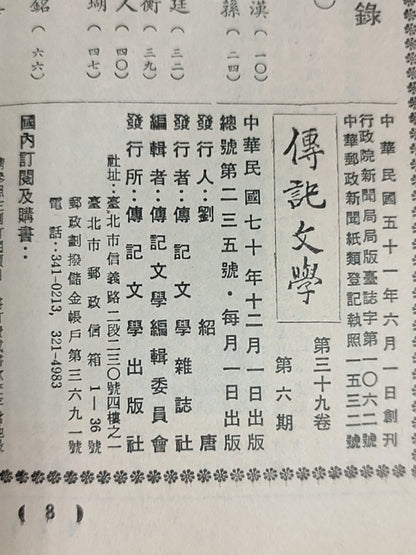 錄
漢（一〇）
蓀（二四）
廷（三二）
衡（三九）
人（四〇）
瑚（四七）
銘（六六）
中華民國五十一年六月一日創刊
行政院新聞局局版臺誌字第一〇六二號
中華郵政新聞紙類登記執照一五三二號
傳記文學
第三十九卷
第六期
中華民國七十年十二月一日出版
總號第二三五號·每月一日出版
發行人：劉紹唐
發行者：傳記文學雜誌社
編輯者：傳記文學編輯委員會
發行所：傳記文學出版社
社址：臺北市信義路二段二三〇號四樓之一
臺北市郵政信箱1—36號
郵政劃撥儲金帳戶第三六九一號
電話：341-0213, 321-4983
國內訂閱及購書：
( 8 )